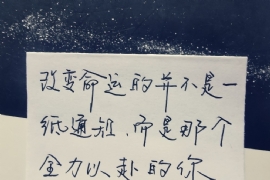 改变命运的并不是一
纸通知,而是那个
全力以赴的你